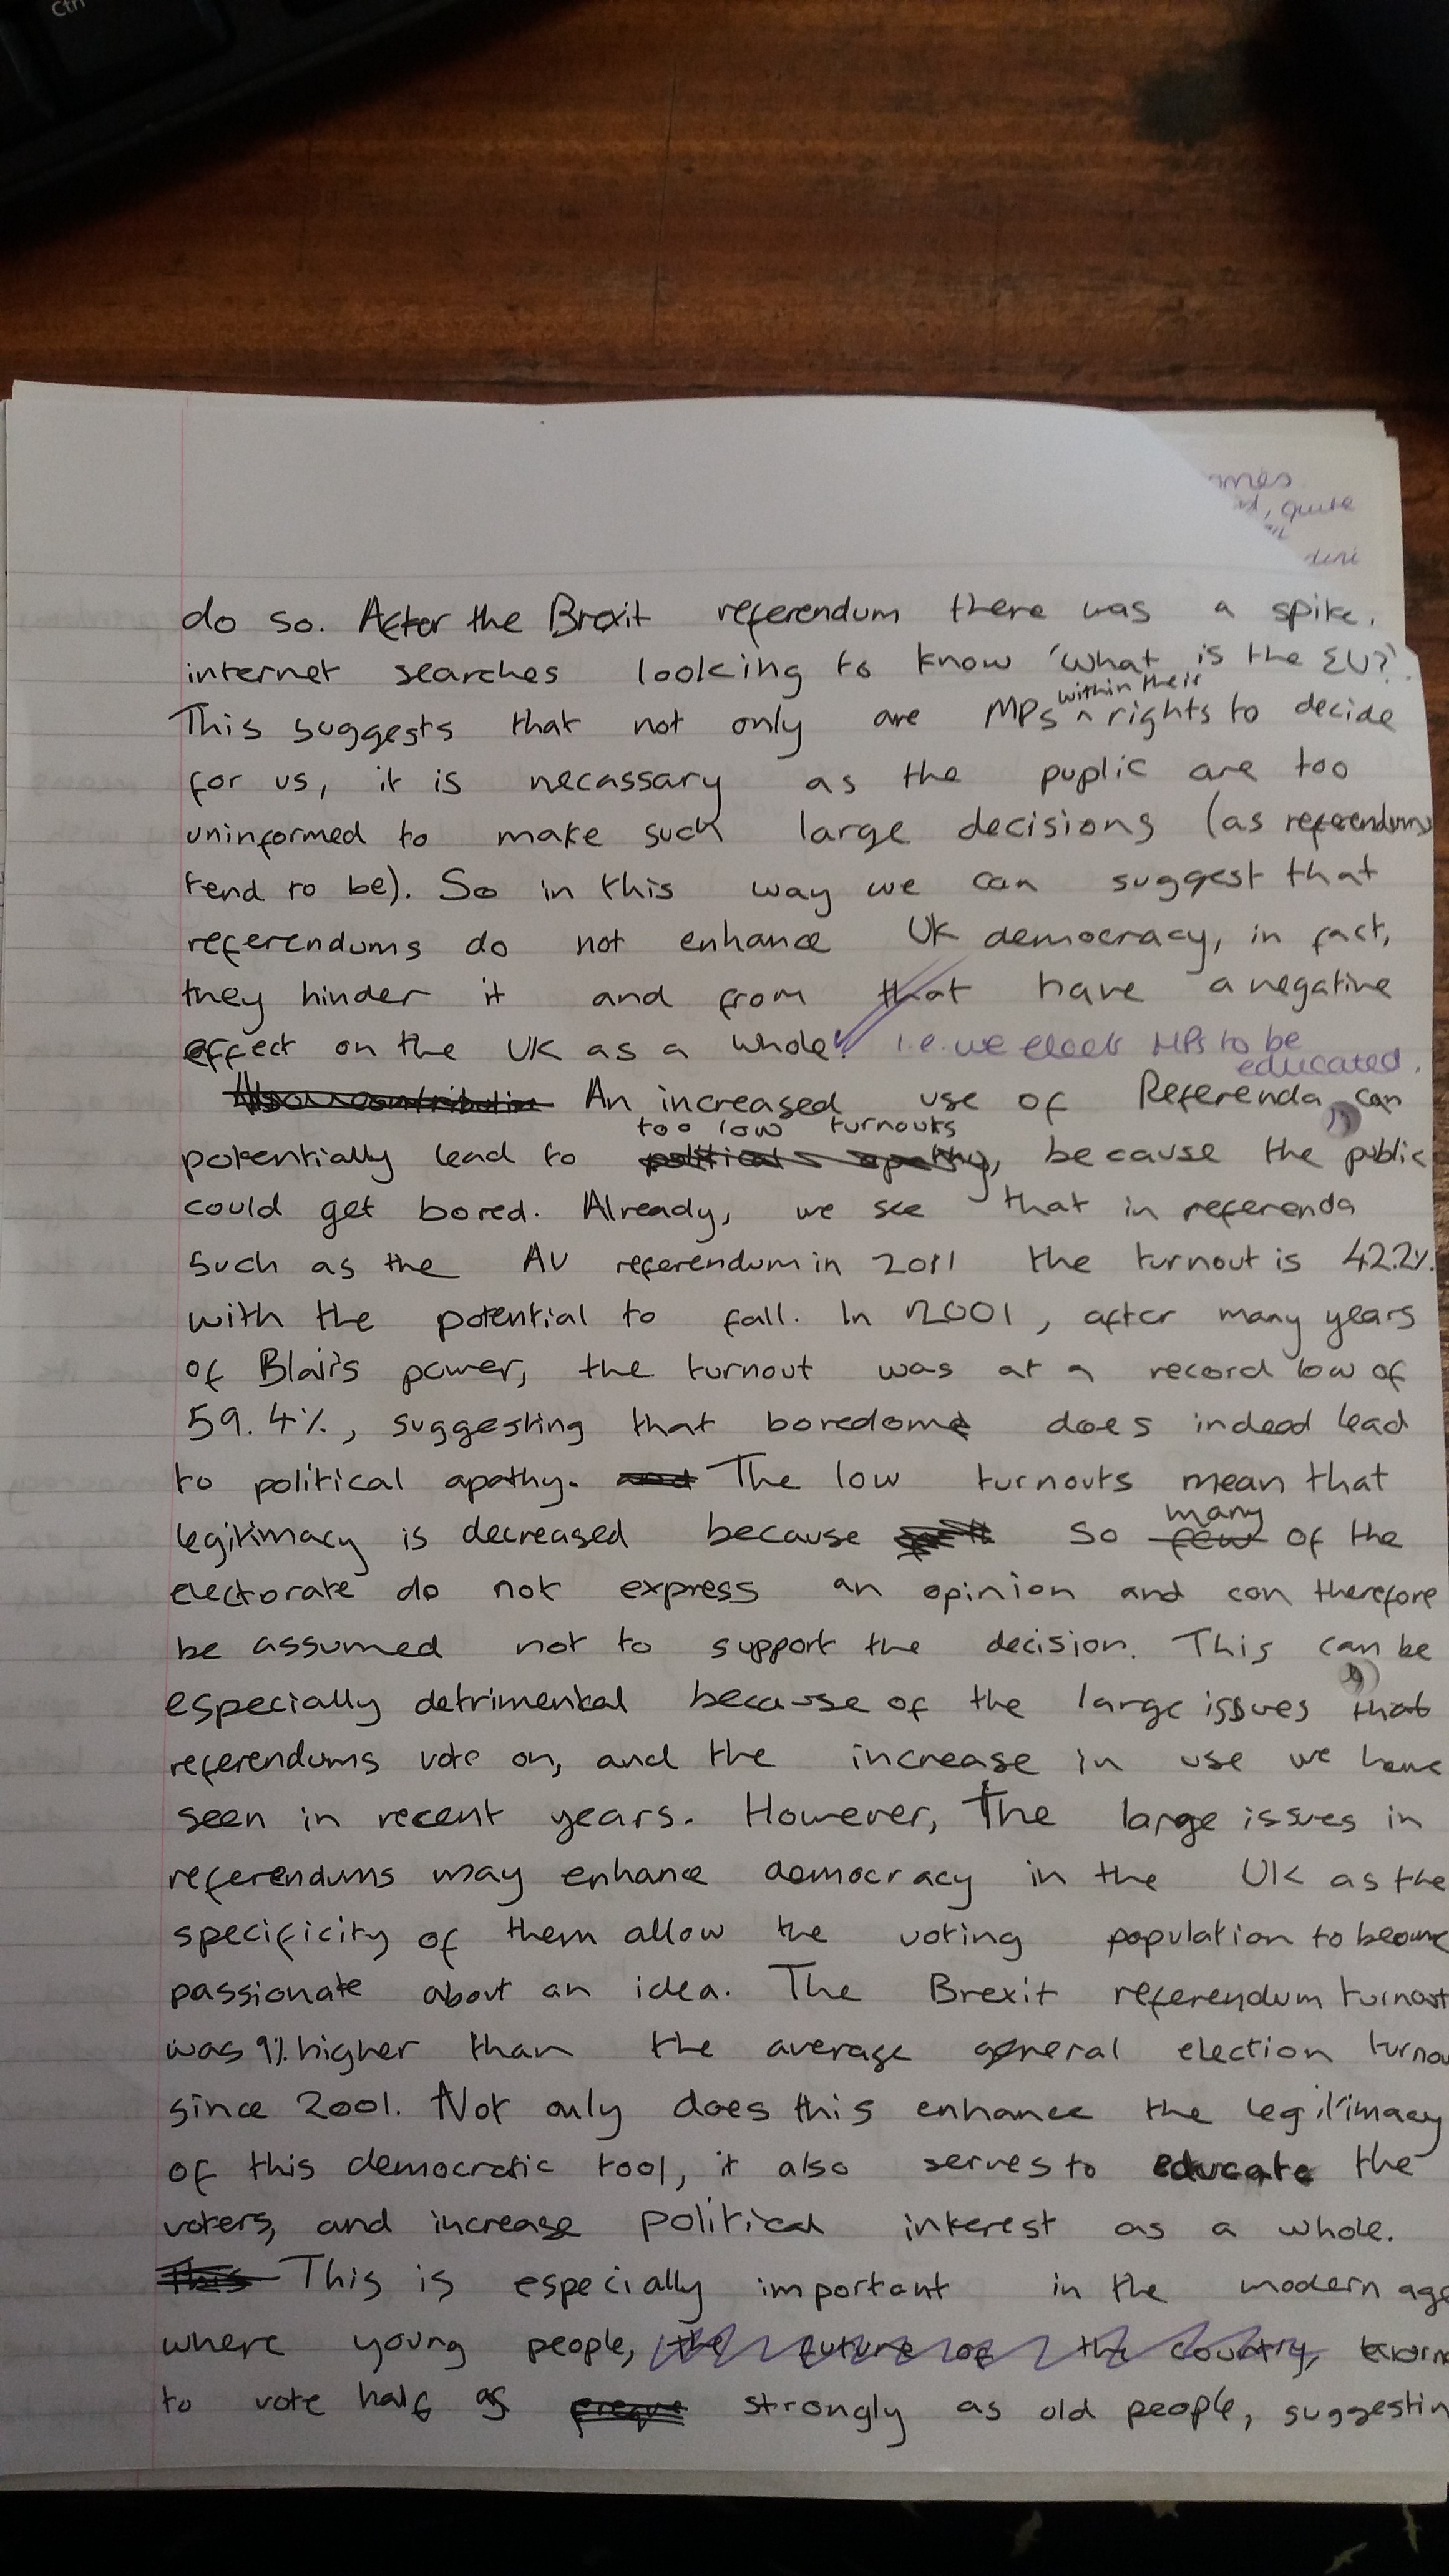 Ctrl
ames
quite
do so. After the Brexit referendum there was a spike.
internet searches looking to know 'What is the EU?'.
within their
This suggests that not only are MPs ^ rights to decide
for us, it is necassary as the puplic are too
uninformed to make such large decisions (as referendums
tend to be). So in this way we can suggest that
referendums do not enhance UK democracy, in fact,
they hinder it and from that have a negative
effect on the UK as a whole. i.e. we elect MPs to be
educated.
Also a contribution An increased use of Referenda, can
too low turnouts
potentially lead to political apathy, because the public
could get bored. Already, we see that in referenda
such as the AV referendum in 2011 the turnout is 42.2%
with the potential to fall. In 2001, after many years
of Blair's power, the turnout was at a record low of
59.4%, suggesting that boredome does indeed lead
to political apathy. and The low turnouts mean that
many
legitimacy is decreased because so few of the
electorate do not express an opinion and can therefore
be assumed not to support the decision. This can be
especially detrimental because of the large issues that
referendums vote on, and the increase in use we have
seen in recent years. However, The large issues in
referendums may enhance democracy in the UK as the
specificity of them allow the voting population to become
passionate about an idea. The Brexit referendum turnout
was 9% higher than the average general election turnou
since 2001. Not only does this enhance the legitimacy
of this democratic tool, it also serves to educate the
voters, and increase political interest as a whole.
This This is especially important in the modern age
where young people, the future of the country,
to vote half as strongly as old people, suggestin